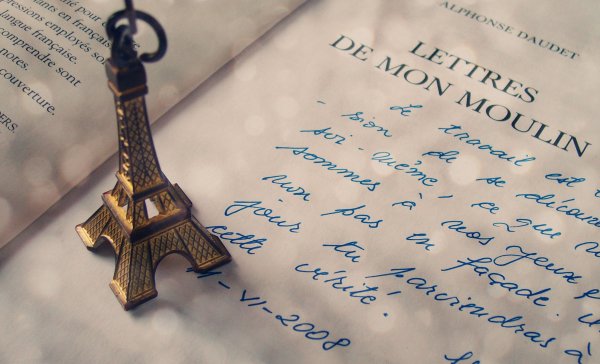 pour
en français
employés
langue française.
comprendre sont
notes,
couverture.
ALPHONSE DAUDET
LETTRES
DE MON MOULIN
Le travail est
- sion de se
soi-même, ce que
sommes à nos yeux
non pas en façade. un
jour tu parviendras à
cette vérité.
11-VI-2008